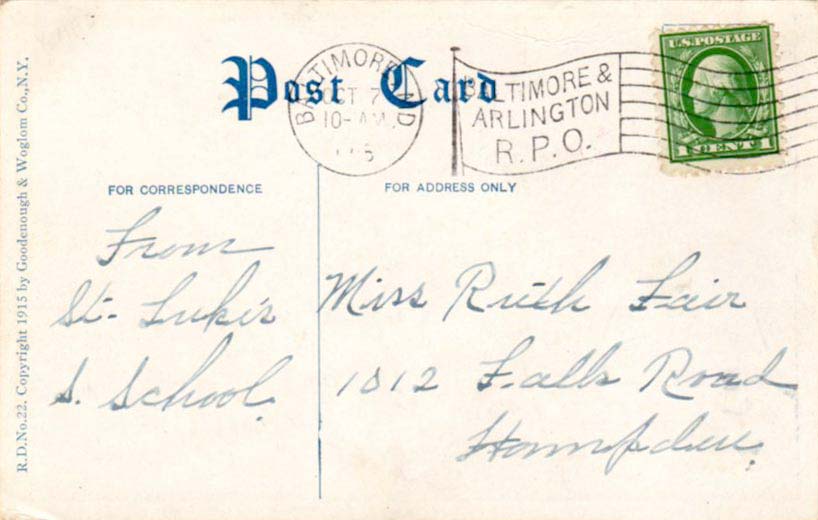 Post Card
BALTIMORE, MD
OCT 7
10-AM.
BALTIMORE &
ARLINGTON
R.P.O.
U.S. POSTAGE
1 CENT 1
FOR CORRESPONDENCE
FOR ADDRESS ONLY
From
St. Luke's
S. School.
Miss Ruth Fair
1012 Falls Road
Hampden.
R.D.No.22. Copyright 1915 by Goodenough & Woglom Co., N.Y.